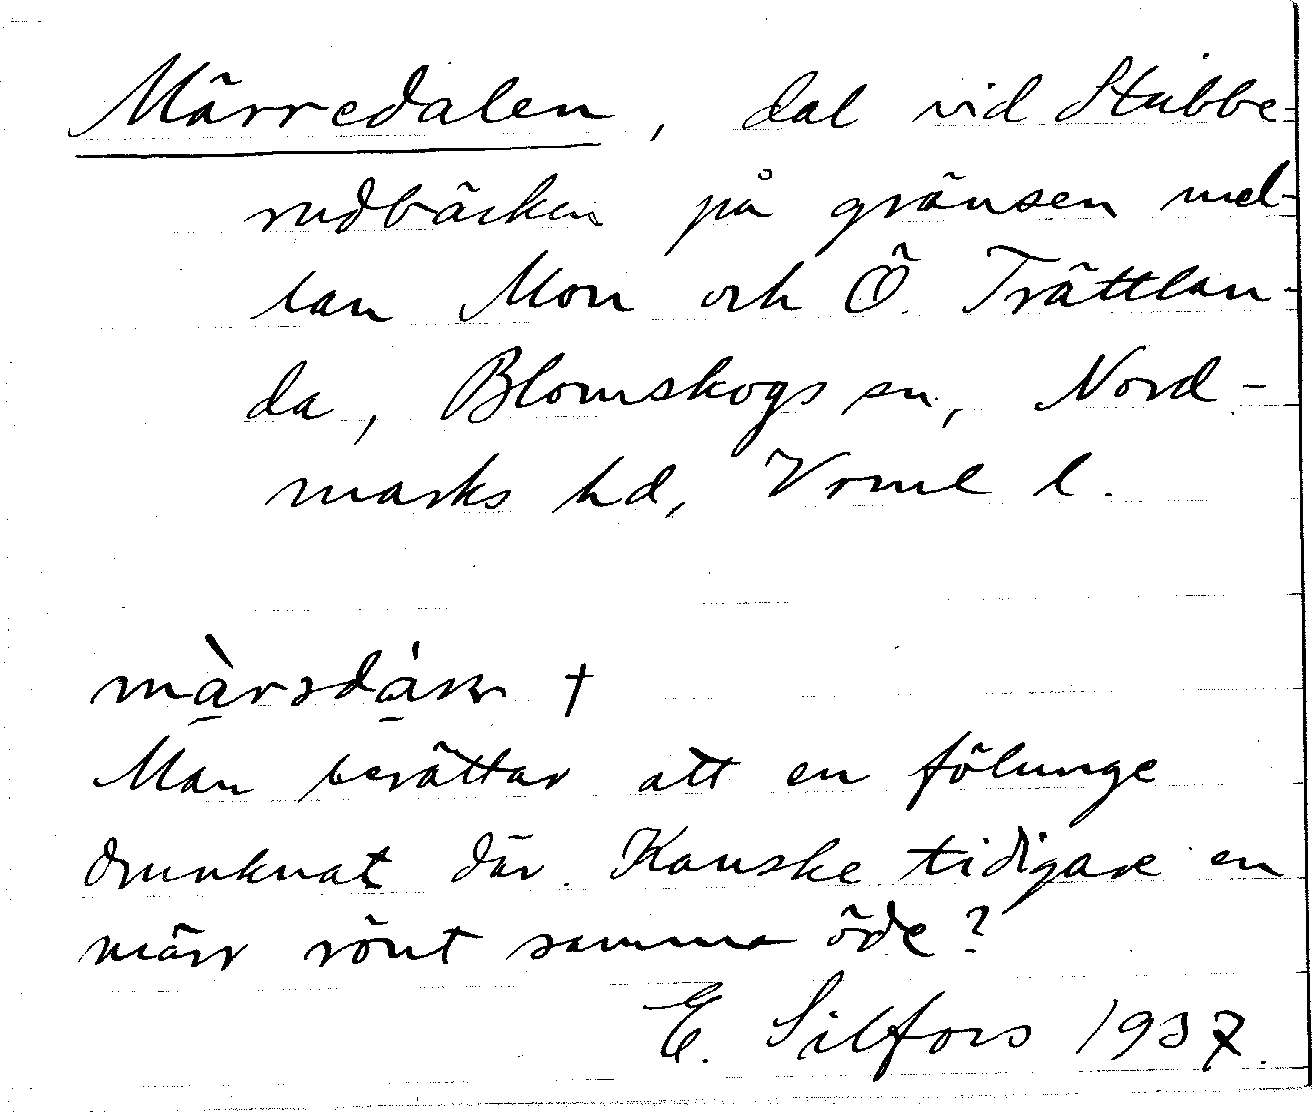 Märredalen, dal vid Stubbe-
rudbäcken på gränsen mel-
lan Mon och Ö. Trättlan-
da, Blomskogs sn, Nord-
marks hd, Vrml l.
†
Man berättar att en fölunge
drunknat där. Kanske tidigare en
märr rönt samma öde?
E. Silfors 1937.